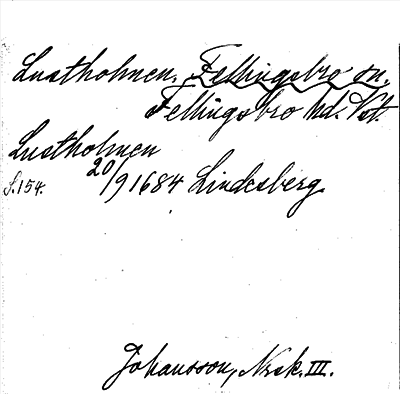 Lustholmen, Fellingsbro sn,
Fellingsbro hd. Vst.
Lustholmen
s. 154. 20/9 1684 Lindesberg
Johansson, Nrsk. III.